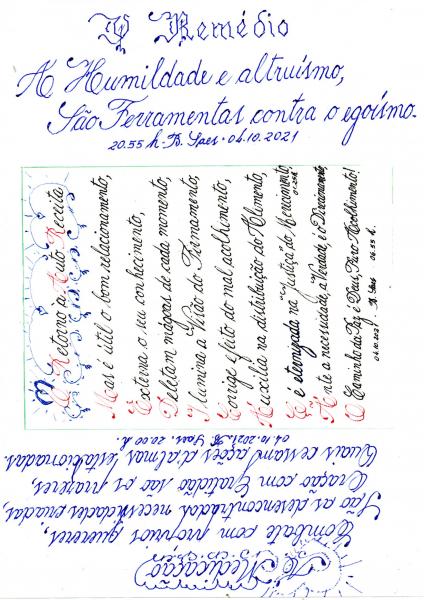 O Remédio
A Humildade e altruísmo,
São Ferramentas contra o egoísmo.
20.55 h. B. Saes. 04.10.2021
Retorno à Auto Receita
Mas é útil o bom relacionamento,
Externa o seu conhecimento,
Deletam mágoas de cada momento,
Ilumina a Visão do Firmamento,
Corrige efeito do mal acolhimento,
Auxilia na distribuição do Alimento,
é na "Justiça" do Merecimento,
Ante a necessidade, a Verdade, é o Direcionamento,
O Caminho da Paz é Deus, Puro Acolhimento!
04.10.2021 B. Saes 06.55 h.
A Medicação
Combate com próprios quereres,
São as desencontradas necessidades criadas,
Oração com Gratidão são os prazeres,
Quais cessam ações d'almas estacionadas.
04.10.2021 B. Saes. 20.00 h.